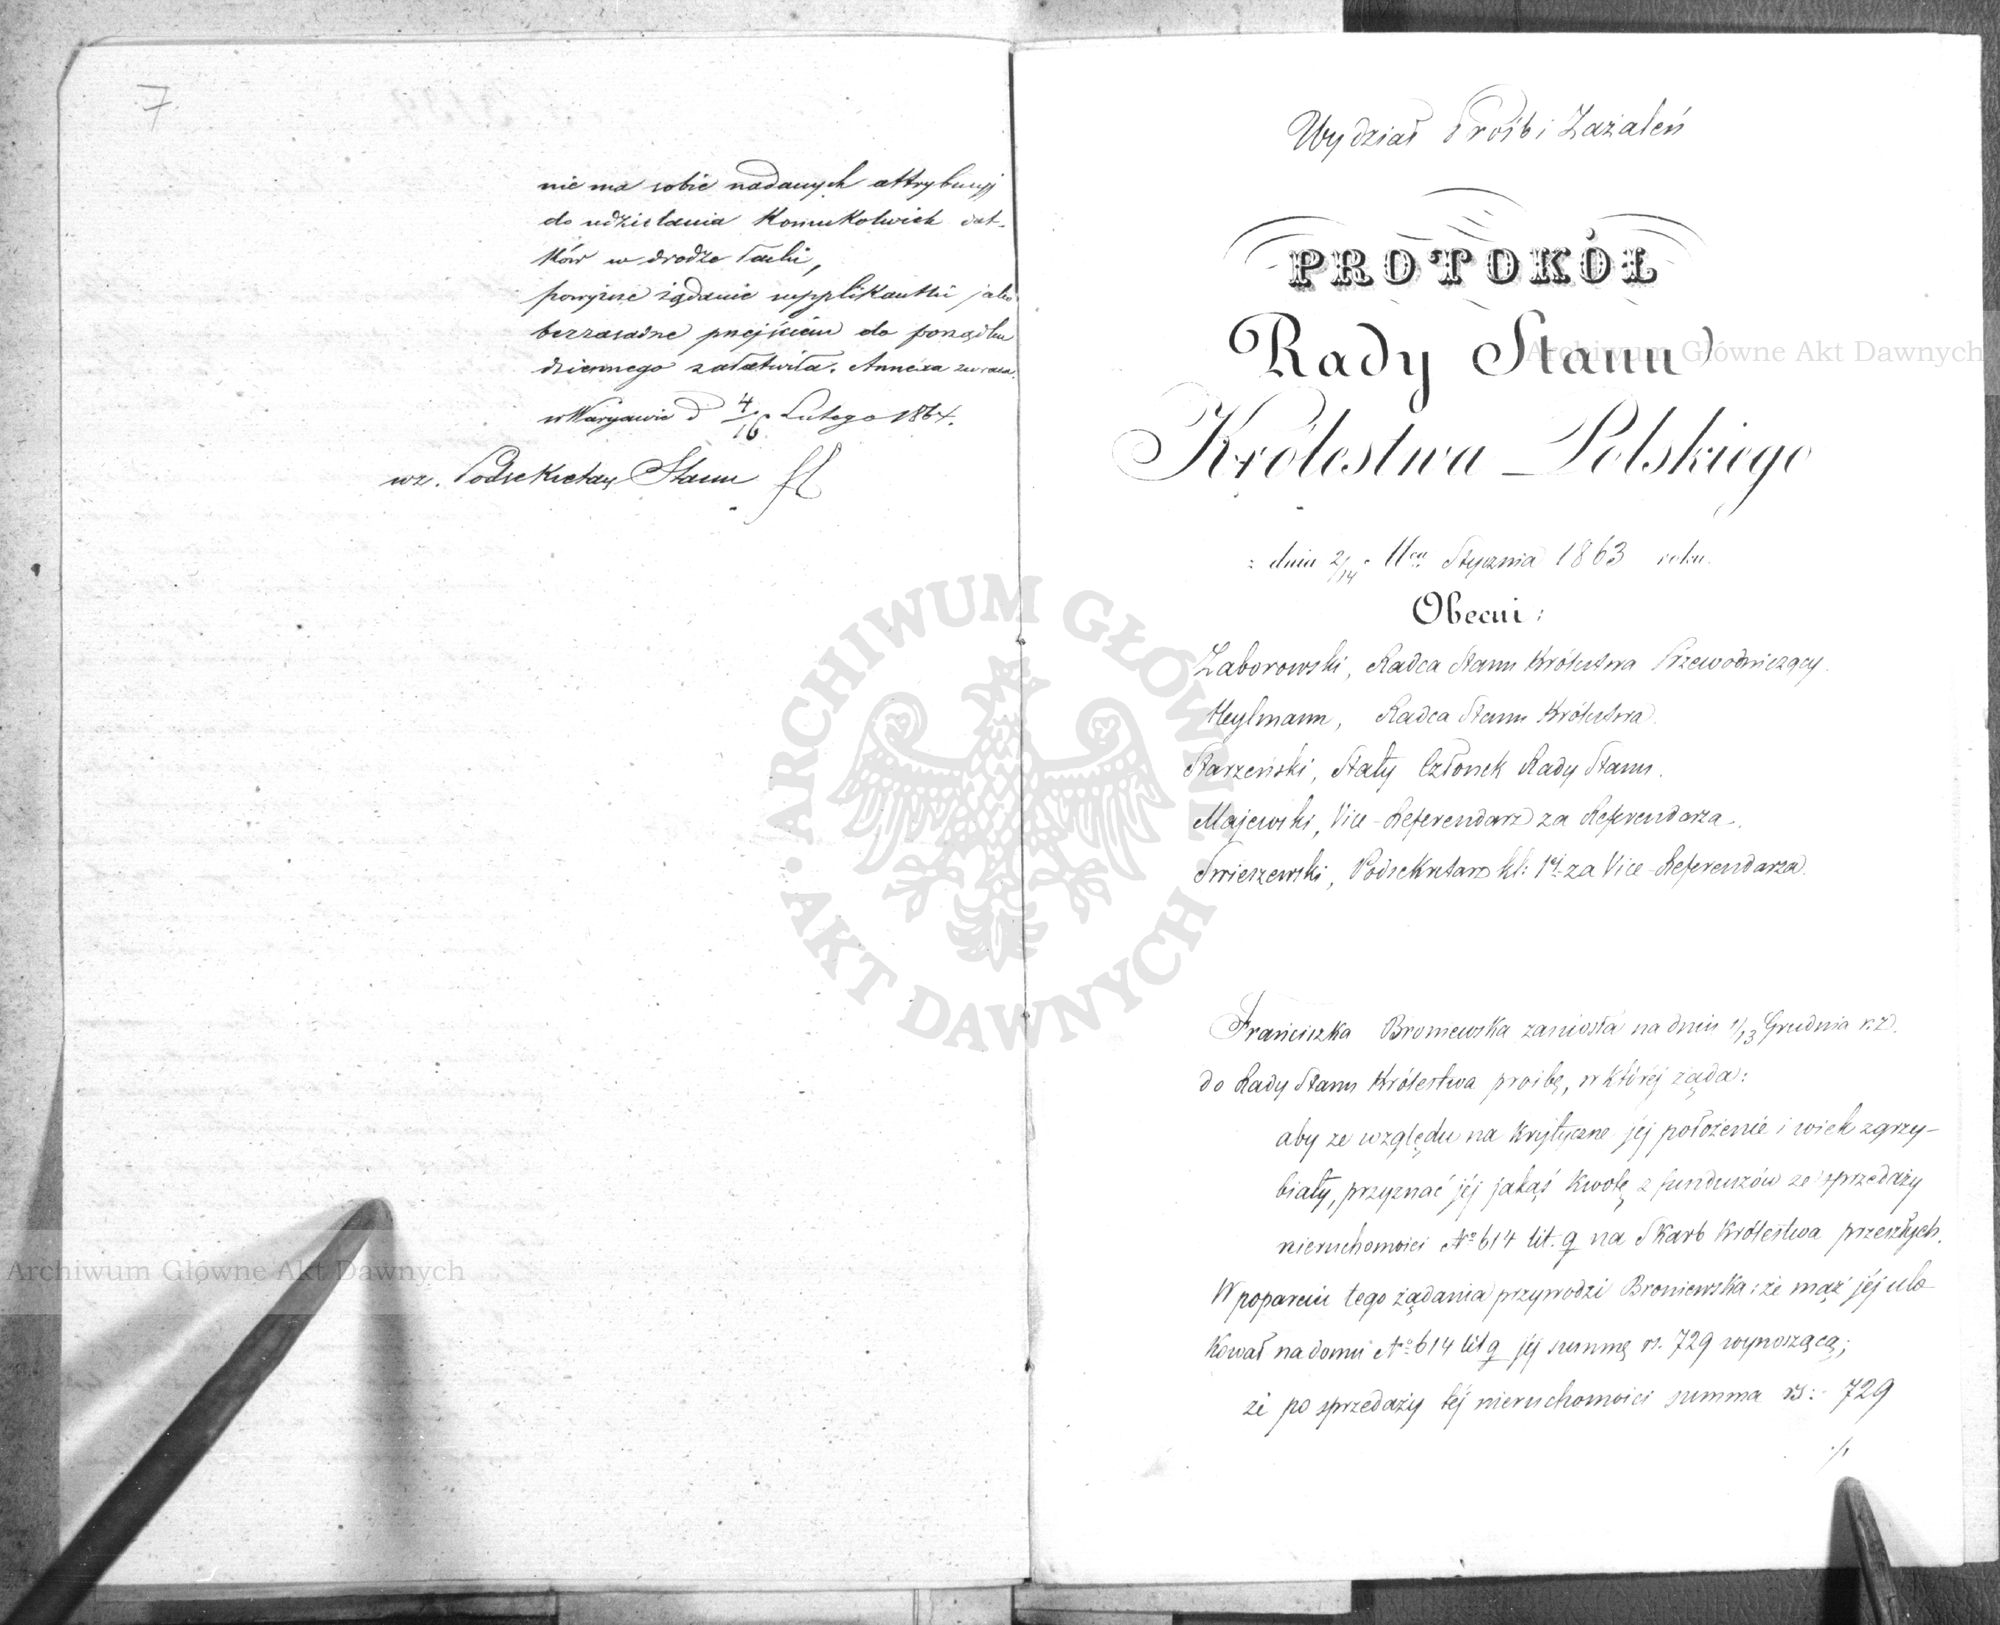 7
nie ma sobie nadanych attrybucyj
do udzielania komukolwiek dat-
ków w drodze łaski,
powyższe żądanie supplikantki jako
bezzasadne przejściem do porządku
dziennego załatwiła. Annexa zwraca.
w Warszawie d 4/16 Lutego 1864.
wz. Podsekretarz Stanu
Wydział Próśb i Zażaleń
PROTOKÓŁ
Rady Stanu
Królestwa Polskiego
z dnia 2/14 Stycznia 1863 roku.
Obecni:
Zaborowski, Radca Stanu Królestwa Przewodniczący.
Heylmann, Radca Stanu Królestwa.
Starzeński, Stały Członek Rady Stanu.
Majewski, Vice-Referendarz za Referendarza.
Podsekretarz kl: 1éj za Vice-Referendarza.
Franciszka Broniewska zaniosła na dniu 1/13 Grudnia r.z.
do Rady Stanu Królestwa prośbę, w której żąda:
aby ze względu na krytyczne jéj położenie i wiek zgrzy-
biały, przyznać jéj jakąś kwotę z funduszów ze sprzedaży
nieruchomości No 614 lit. q na Skarb Królestwa przeszłych.
W poparciu tego żądania przywodzi Broniewska: że mąż jéj ulo-
kował na domu No 614 lit q jéj summę rs. 729 wynoszącą;
że po sprzedaży téj nieruchomości summa rs: 729
./.
ARCHIWUM GŁÓWNE · AKT DAWNYCH ·
Archiwum Główne Akt Dawnych
Archiwum Główne Akt Dawnych